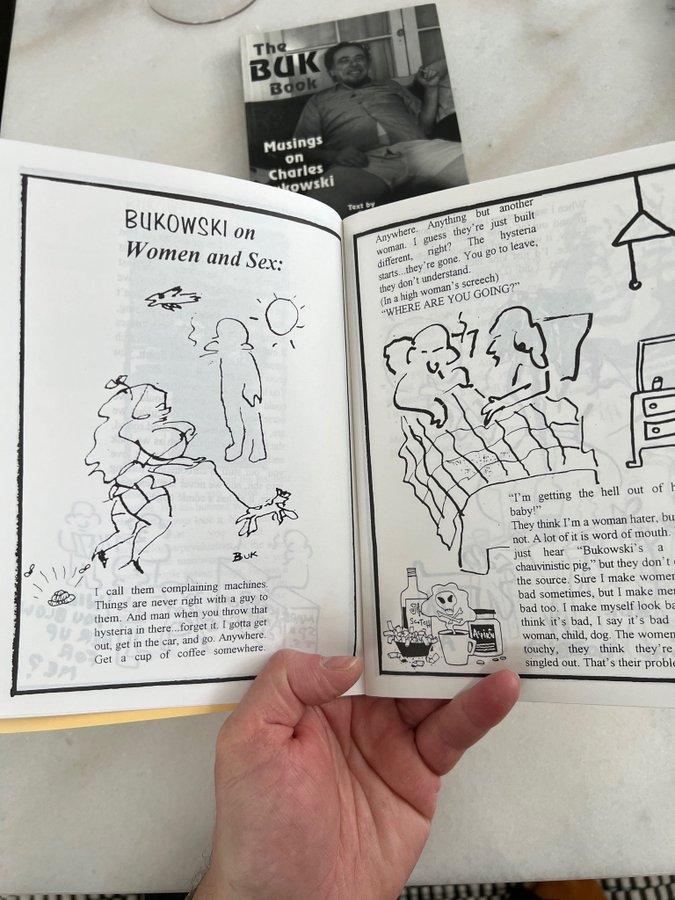 The
BUK
Book
Musings
on
Charles
Text by
BUKOWSKI on
Women and Sex:
BUK
I call them complaining machines.
Things are never right with a guy to
them. And man when you throw that
hysteria in there...forget it. I gotta get
out, get in the car, and go. Anywhere.
Get a cup of coffee somewhere.
Anywhere. Anything but another
woman. I guess they're just built
different, right? The hysteria
starts...they're gone. You go to leave,
they don't understand.
(In a high woman's screech)
"WHERE ARE YOU GOING?"
"I'm getting the hell out of
baby!"
They think I'm a woman hater, but
not. A lot of it is word of mouth.
just hear "Bukowski's a
chauvinistic pig," but they don't
the source. Sure I make women
bad sometimes, but I make men
bad too. I make myself look
think it's bad, I say it's bad
woman, child, dog. The women
touchy, they think they're
singled out. That's their